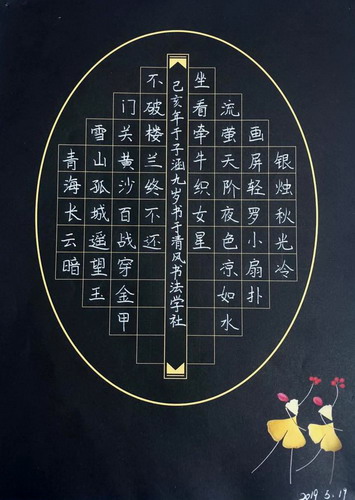 银烛秋光冷
画屏轻罗小扇扑
流萤天阶夜色凉如水
坐看牵牛织女星
己亥年于子涵九岁书于清风书法学社
青海长云暗
雪山孤城遥望玉
门关黄沙百战穿金甲
不破楼兰终不还
2019 5.19